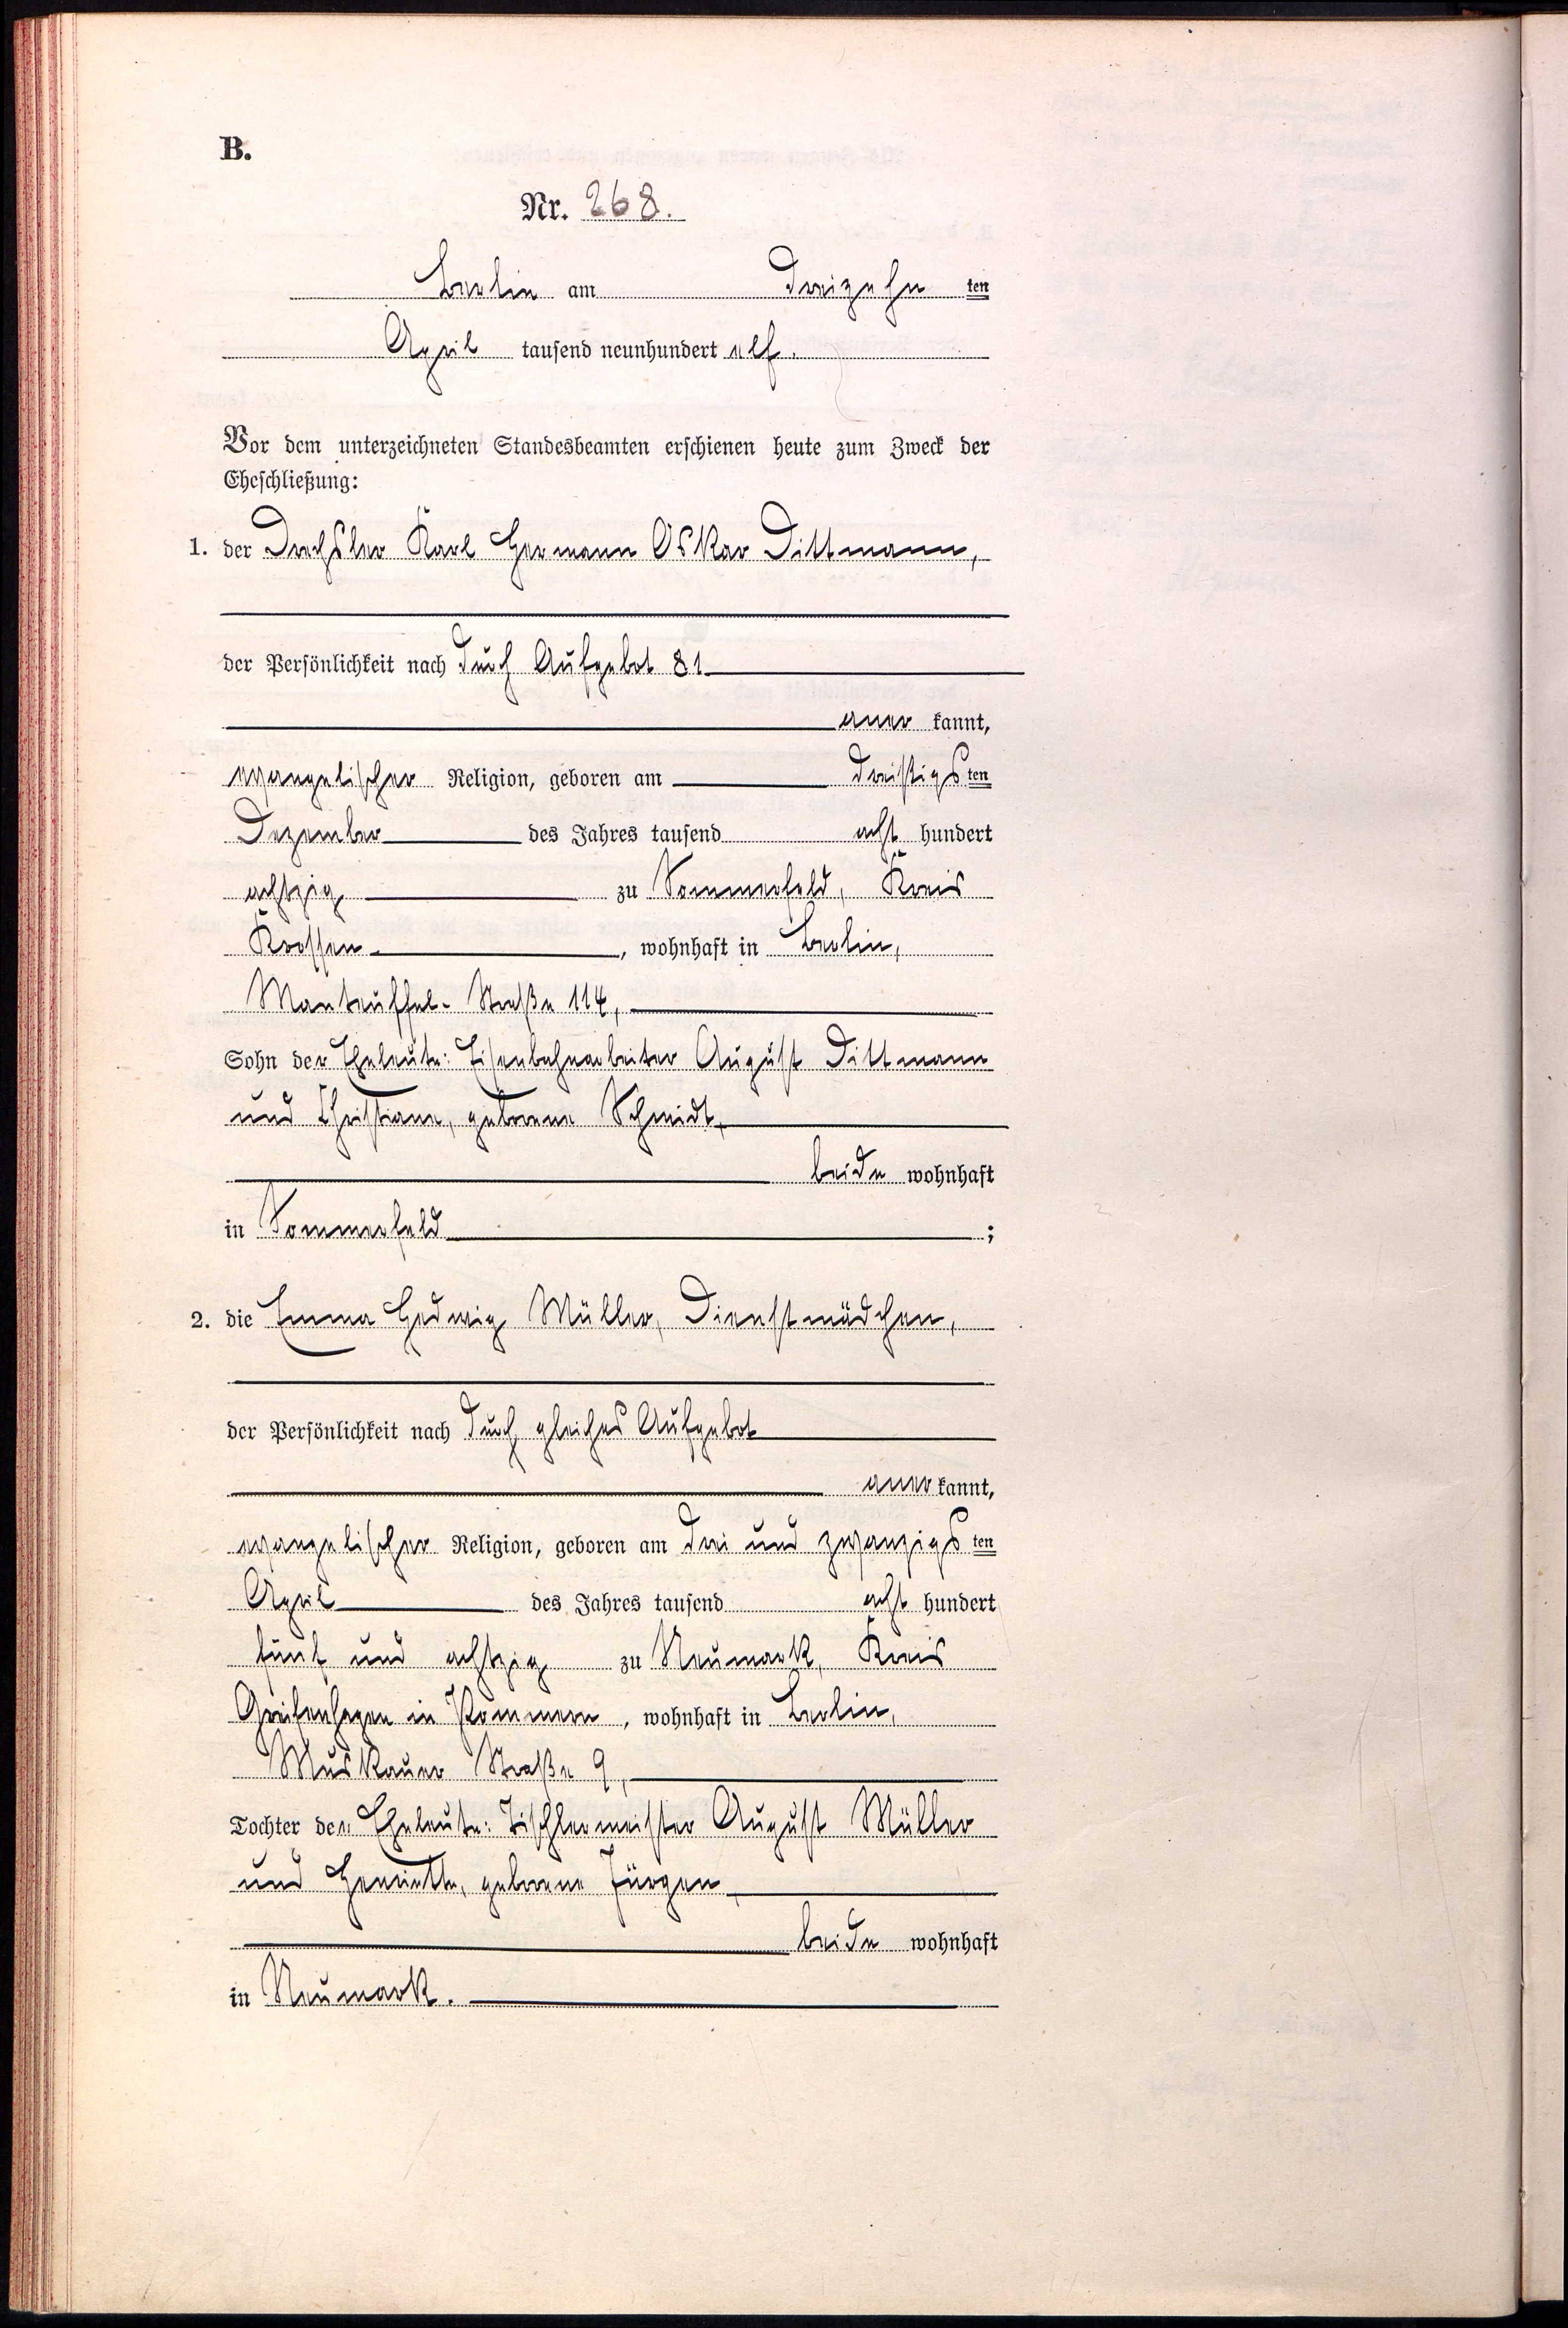 B.
Nr. 268.
Berlin am dreizehn ten
April tausend neunhundert elf.
Vor dem unterzeichneten Standesbeamten erschienen heute zum Zweck der
Eheschließung:
1. der Drechsler Karl Hermann Oskar Dittmann,
der Persönlichkeit nach durch Aufgebot 81
aner kannt,
evangelischer Religion, geboren am dreißigs ten
Dezember des Jahres tausend acht hundert
achtzig zu Sommerfeld, Kreis
Krossen, wohnhaft in Berlin,
Manteuffel-Straße 114,
Sohn der Eheleute: Eisenbahnarbeiter August Dittmann
und Christiane, geborene Schmidt,
beide wohnhaft
in Sommerfeld ;
2. die Emma Hedwig Müller, Dienstmädchen,
der Persönlichkeit nach durch gleiches Aufgebot
aner kannt,
evangelischer Religion, geboren am drei und zwanzigs ten
April des Jahres tausend acht hundert
fünf und achtzig zu Neumark, Kreis
Greifenhagen in Pommern, wohnhaft in Berlin,
Muskauer Straße 9,
Tochter der Eheleute: Tischlermeister August Müller
und Henriette, geborene Jürgen,
beide wohnhaft
in Neumark.